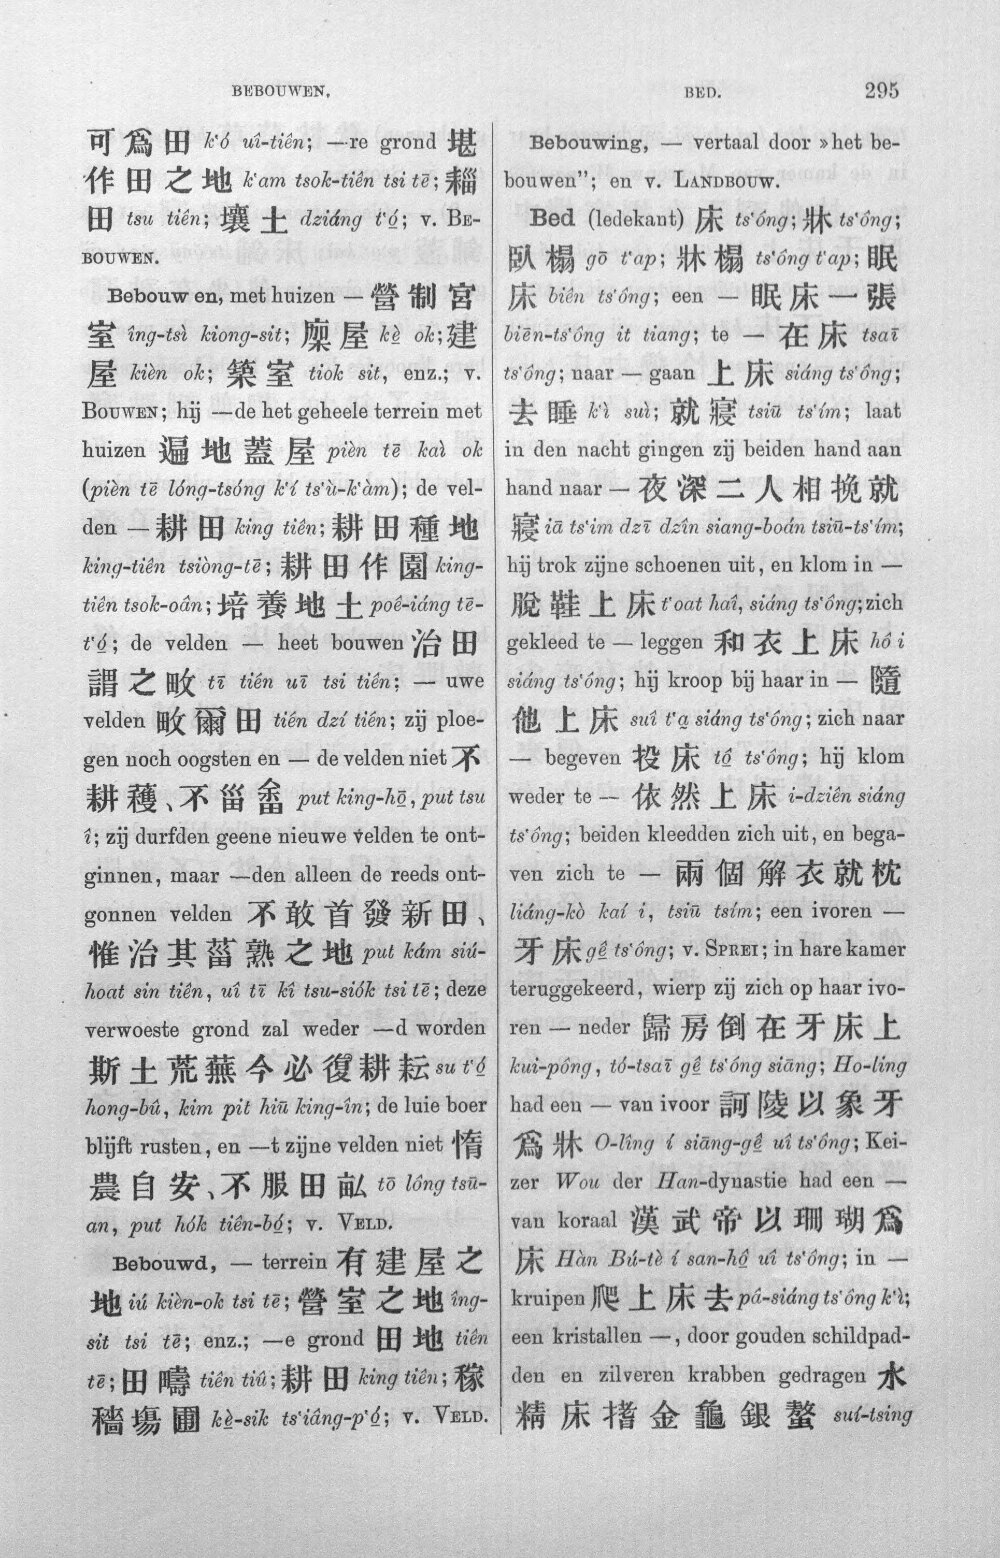 BEBOUWEN.
BED.
295
可爲田 k‘ó uî-tiên; —re grond 堪
作田之地 k‘am tsok-tiên tsi tē; 耰
田 tsu tiên; 壤土 dziáng t‘ó̤; v. BE-
BOUWEN.
Bebouwen, met huizen — 營制宮
室 îng-tsì kiong-sit; 廩屋 kè̤ ok; 建
屋 kièn ok; 築室 tiok sit, enz.; v.
BOUWEN; hij —de het geheele terrein met
huizen 遍地蓋屋 pièn tē kaì ok
(pièn tē lóng-tsóng k‘í ts‘ù-k‘àm); de vel-
den — 耕田 king tiên; 耕田種地
king-tiên tsiòng-tē; 耕田作園 king-
tiên tsok-oân; 培養地土 poê-iáng tē-
t‘ó̤; de velden — heet bouwen 治田
謂之畋 tī tiên uī tsi tiên; — uwe
velden 畋爾田 tiên dzí tiên; zij ploe-
gen noch oogsten en — de velden niet 不
耕穫、不菑畬 put king-hō̤, put tsu
î; zij durfden geene nieuwe velden te ont-
ginnen, maar —den alleen de reeds ont-
gonnen velden 不敢首發新田、
惟治其菑熟之地 put kám siú-
hoat sin tiên, uî tī kî tsu-siók tsi tē; deze
verwoeste grond zal weder —d worden
斯土荒蕪今必復耕耘 su t‘ó̤
hong-bû, kim pit hiū king-în; de luie boer
blijft rusten, en —t zijne velden niet 惰
農自安、不服田畝 tō lông tsū-
an, put hók tiên-bó̤; v. VELD.
Bebouwd, — terrein 有建屋之
地 iú kièn-ok tsi tē; 營室之地 îng-
sit tsi tē; enz.; —e grond 田地 tiên
tē; 田疇 tiên tiû; 耕田 king tiên; 稼
穡塲圃 kè̤-sik ts‘iâng-p‘ó̤; v. VELD.
Bebouwing, — vertaal door »het be-
bouwen”; en v. LANDBOUW.
Bed (ledekant) 床 ts‘ông; 牀 ts‘ông;
臥榻 gō t‘ap; 牀榻 ts‘ông t‘ap; 眠
床 biên ts‘ông; een — 眠床一張
biēn-ts‘ông it tiang; te — 在床 tsaī
ts‘ông; naar — gaan 上床 siáng ts‘ông;
去睡 k‘ì suì; 就寢 tsiū ts‘ím; laat
in den nacht gingen zij beiden hand aan
hand naar — 夜深二人相挽就
寢 iā ts‘im dzī dzîn siang-boán tsiū-ts‘ím;
hij trok zijne schoenen uit, en klom in —
脫鞋上床 t‘oat haî, siáng ts‘ông; zich
gekleed te — leggen 和衣上床 hô i
siáng ts‘ông; hij kroop bij haar in — 隨
他上床 suî t‘a̤ siáng ts‘ông; zich naar
— begeven 投床 tô̤ ts‘ông; hij klom
weder te — 依然上床 i-dziên siáng
ts‘ông; beiden kleedden zich uit, en bega-
ven zich te — 兩個解衣就枕
liáng-kò kaí i, tsiū tsím; een ivoren —
牙床 gê̤ ts‘ông; v. SPREI; in hare kamer
teruggekeerd, wierp zij zich op haar ivo-
ren — neder 歸房倒在牙床上
kui-pông, tó-tsaī gê̤ ts‘ông siāng; Ho-ling
had een — van ivoor 訶陵以象牙
爲牀 O-lîng í siāng-gê̤ uî ts‘ông; Kei-
zer Wou der Han-dynastie had een —
van koraal 漢武帝以珊瑚爲
床 Hàn Bú-tè í san-hô̤ uî ts‘ông; in —
kruipen 爬上床去 pâ-siáng ts‘ông k‘ì;
een kristallen —, door gouden schildpad-
den en zilveren krabben gedragen 水
精床搘金龜銀螯 suí-tsing